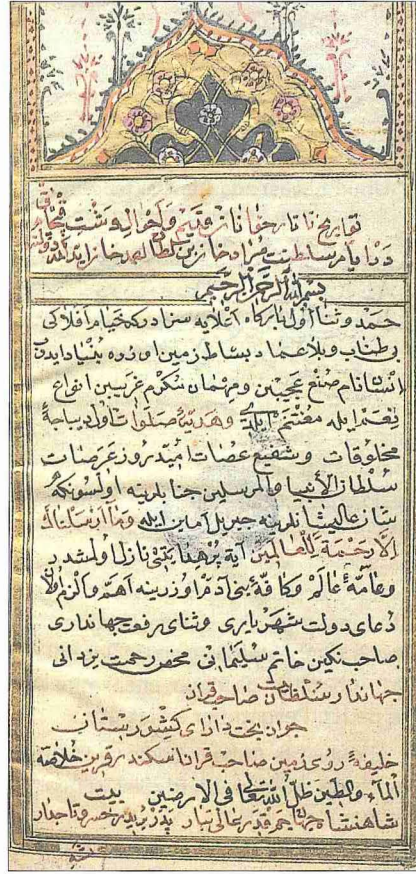 تواريخ تاتار خانان قديم و احوال دشت قپچاق
در ايام سلطنت مراد خان بن سلطان احمد خان
بسم الله الرحمن الرحيم
حمد وثنا اول بارگاه اعلايه سزادركه خيام افلاكى
بى طناب وبلا عماد بساط زمين اوزره بنياد ايدوب
انسان نام صنع عجيبين ومهمان مكرم غريبين انواع
نعم ايله مغتنم ايلدى وهديهٔ صلوات اول ديباجهٔ
مخلوقات وشفيع عصات اميد روز عرصات
سلطان الأنبيا والمرسلين جنابلرينه اولسونكه
شان عاليشانلرينه جبريل امين ايله وما ارسلناك
الا رحمة للعالمين آية برهان نازل اولمشدر
وعامهٔ عالم وكافهٔ بنى آدم اوزرينه اهم والزم اولان
دعاى دولت شهريارى وثناى رفعت جهاندارى
صاحب نكين خاتم سليمانى محض رحمت يزدانى
جهاندار وسلطان صاحب قران
جوان بخت داراى كشورستان
خليفهٔ روى زمين صاحب قران اسكندر قرين خلاصة
الماء والطين ظل الله تعالى فى الارضين بيت
شاهنشاه جهان عاليتبار پدر بر پدر خسرو تاجدار